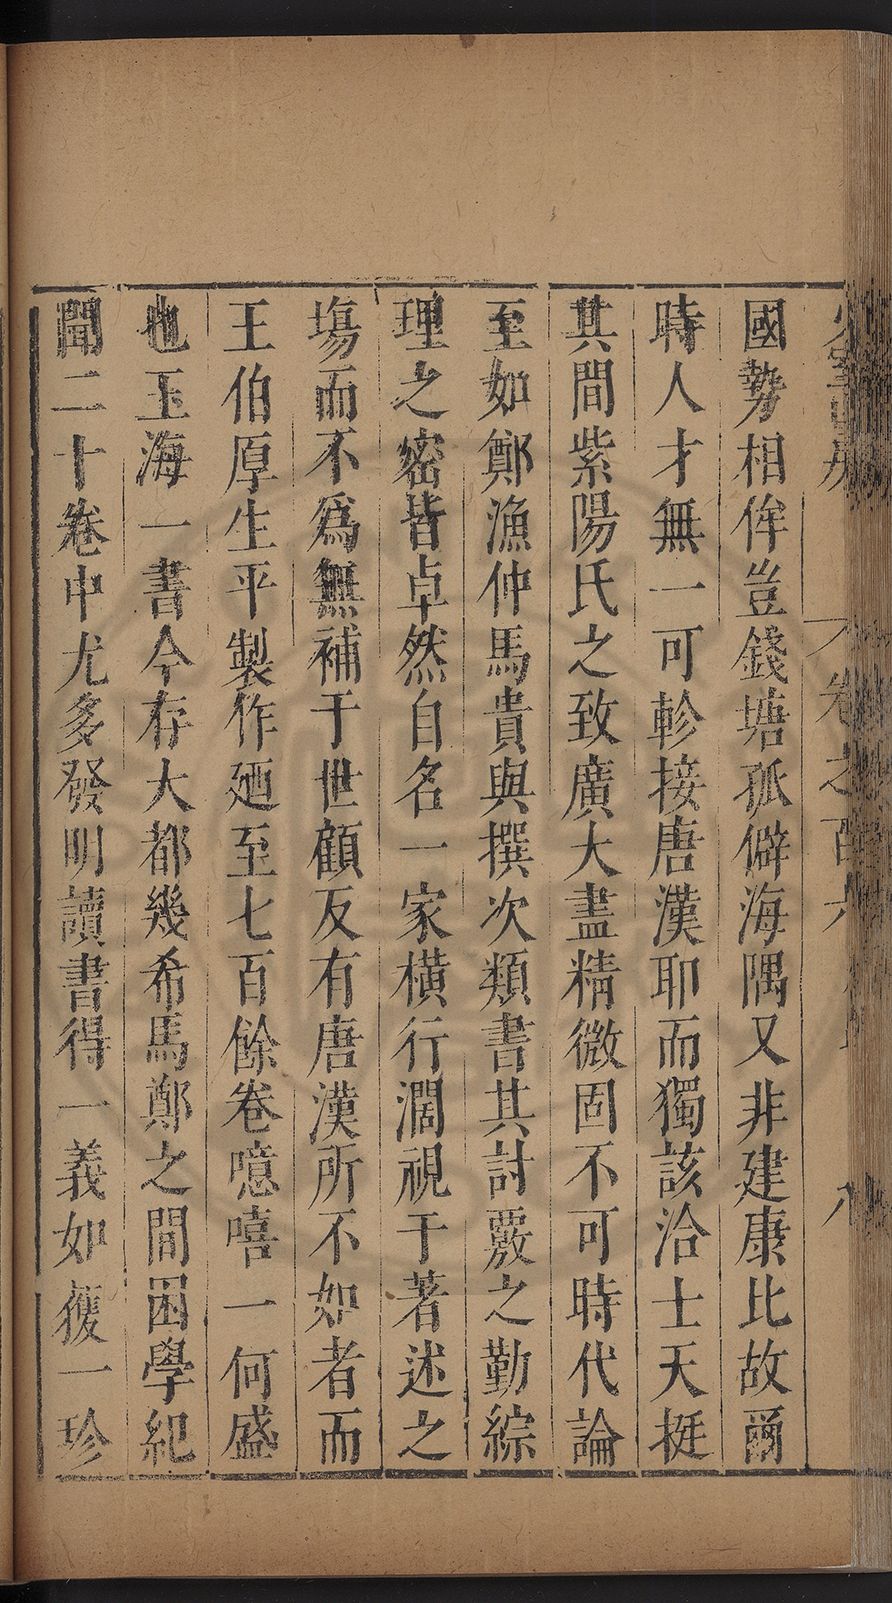 國勢相侔豈錢塘孤僻海隅又非建康比故爾
時人才無一可軫接唐漢耶而獨該洽士天挺
其間紫陽氏之致廣大盡精微固不可時代論
至如鄭漁仲馬貴與撰次類書其討覈之勤綜
理之密皆卓然自名一家橫行濶視于著述之
塲而不爲無補于世顧反有唐漢所不如者而
王伯厚生平製作廼至七百餘卷噫嘻一何盛
也玉海一書今存大都幾希馬鄭之間困學紀
聞二十卷中尤多發明讀書得一義如獲一珍
卷之百六
八